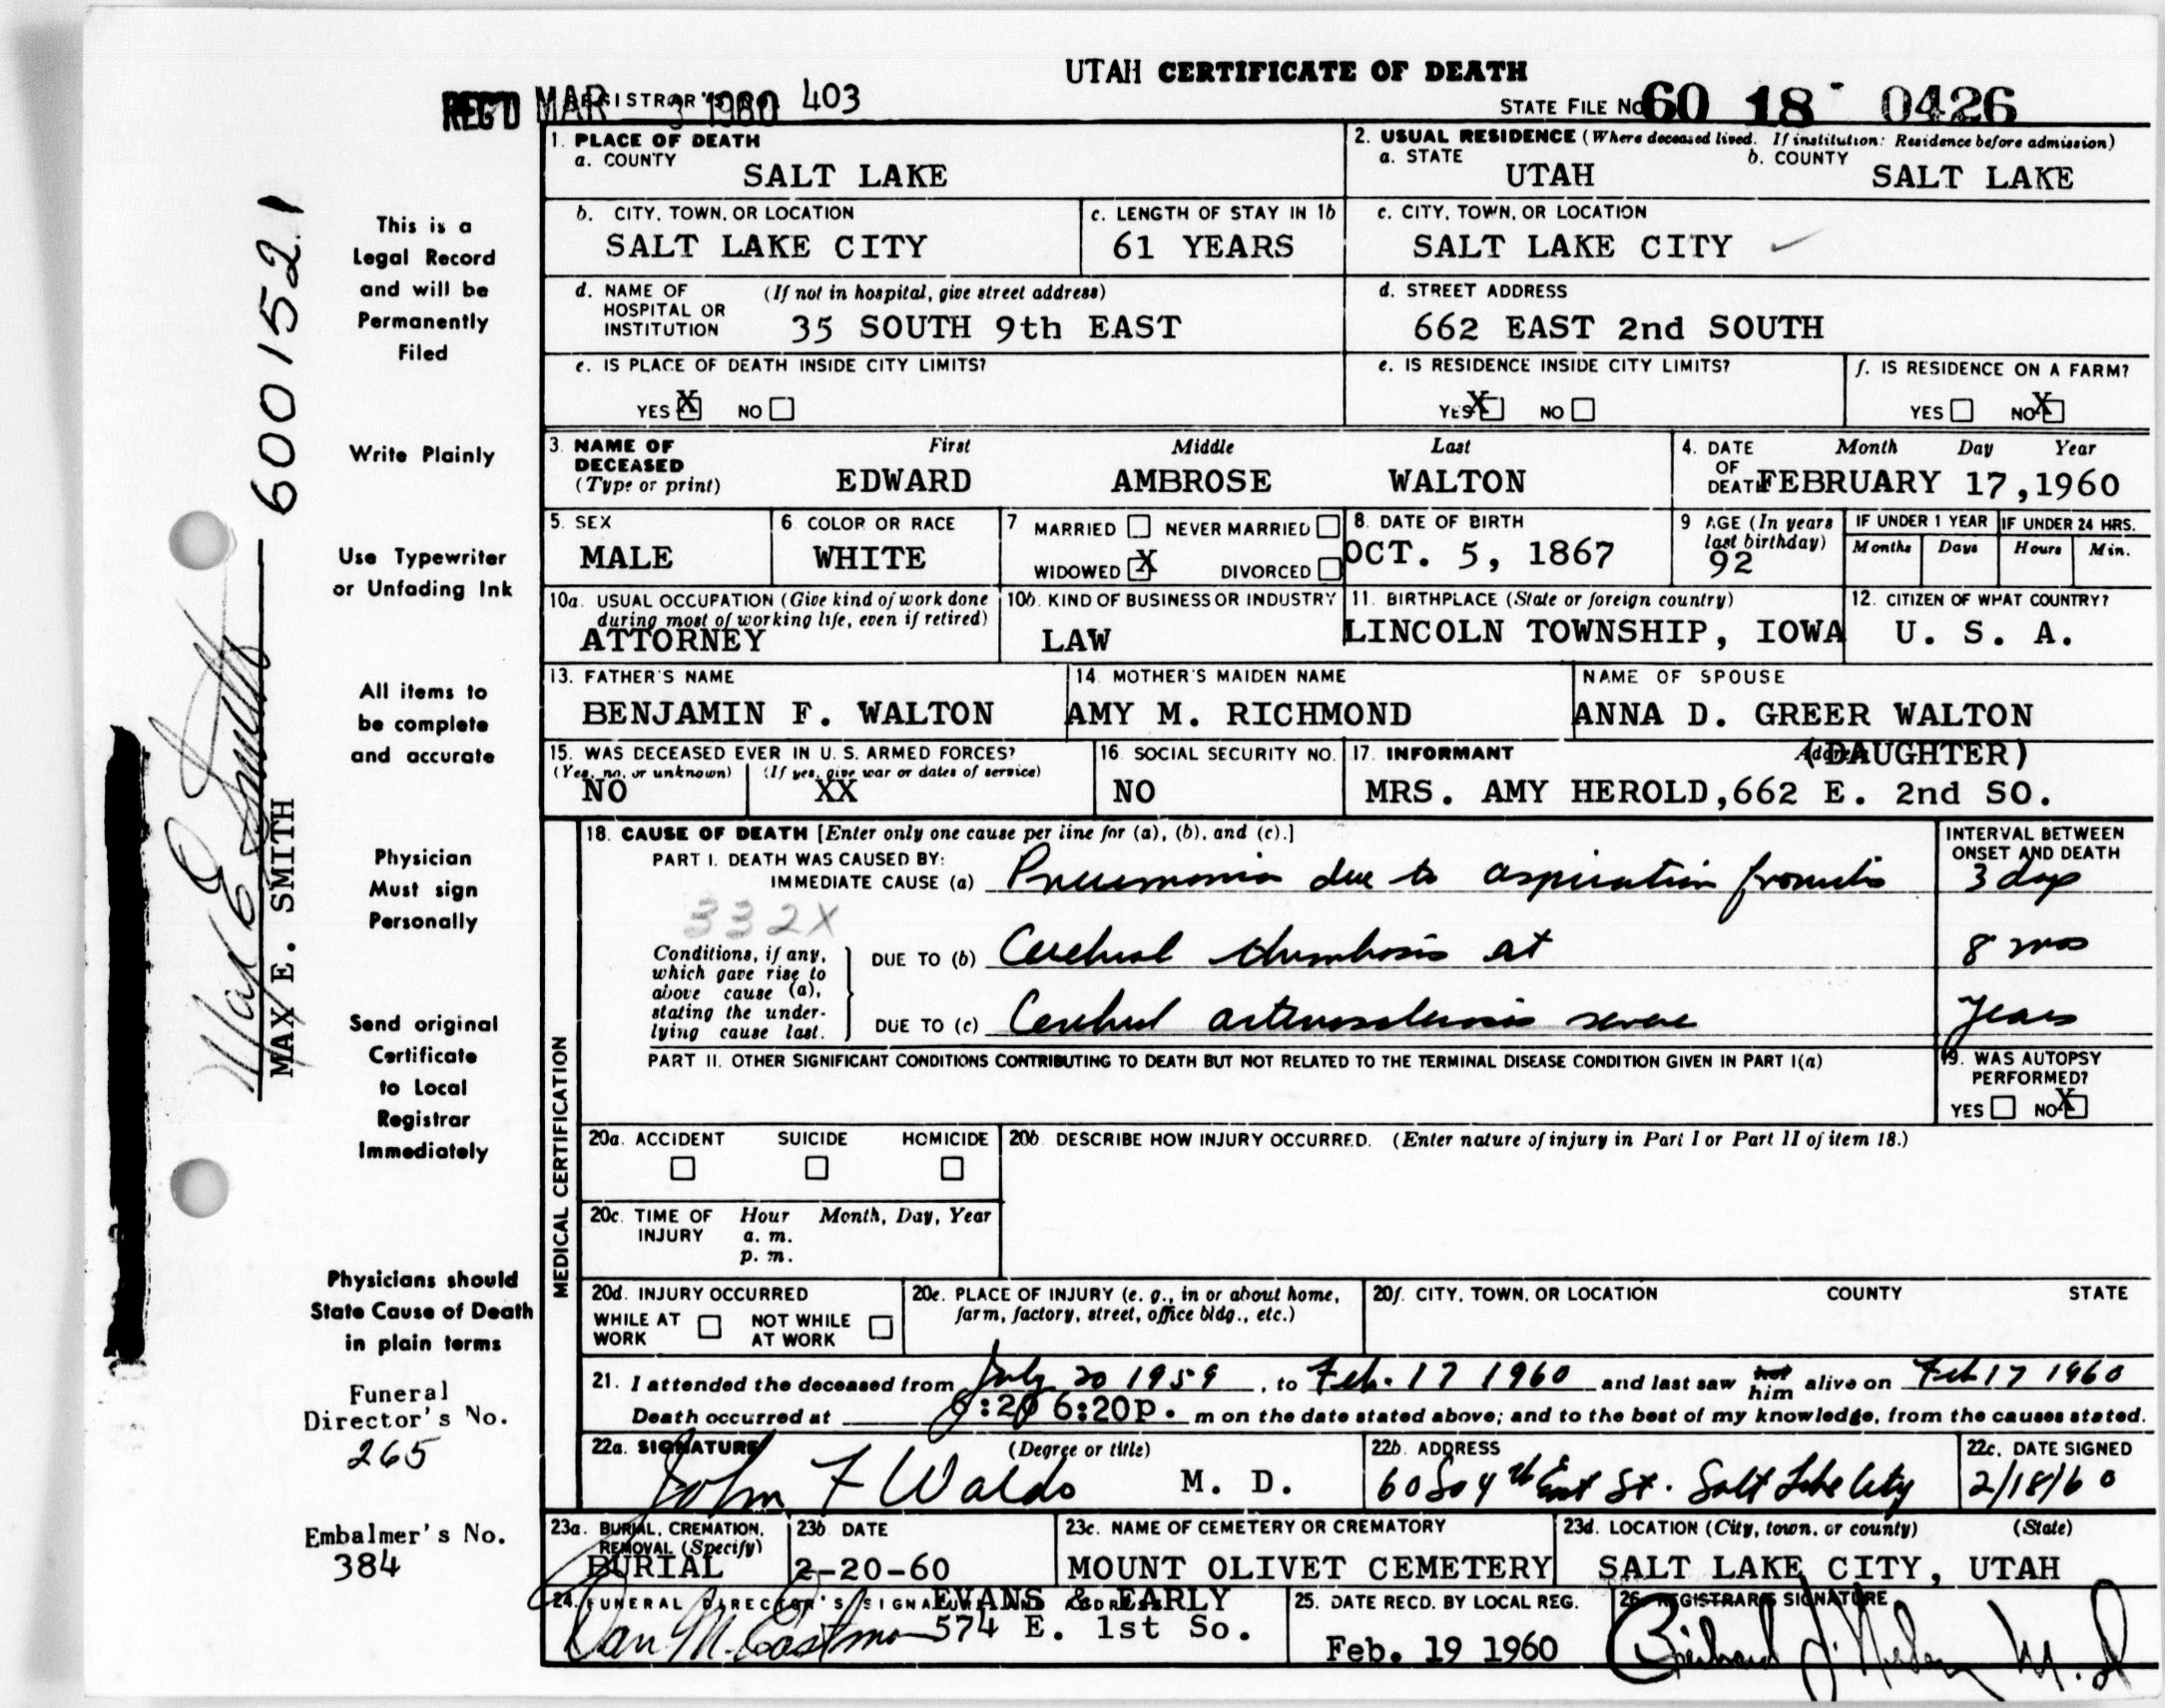 UTAH CERTIFICATE OF DEATH
REG'D MAR 3 1960 REGISTRAR'S 403
STATE FILE NO. 60 18 - 0426
1. PLACE OF DEATH
a. COUNTY
SALT LAKE
2. USUAL RESIDENCE (Where deceased lived. If institution: Residence before admission)
a. STATE UTAH b. COUNTY SALT LAKE
b. CITY, TOWN, OR LOCATION
SALT LAKE CITY
c. LENGTH OF STAY IN 1b
61 YEARS
c. CITY, TOWN, OR LOCATION
SALT LAKE CITY ✓
d. NAME OF HOSPITAL OR INSTITUTION (If not in hospital, give street address)
35 SOUTH 9th EAST
d. STREET ADDRESS
662 EAST 2nd SOUTH
e. IS PLACE OF DEATH INSIDE CITY LIMITS?
YES X NO
e. IS RESIDENCE INSIDE CITY LIMITS?
YES X NO
f. IS RESIDENCE ON A FARM?
YES NO X
3. NAME OF DECEASED (Type or print)
First Middle Last
EDWARD AMBROSE WALTON
4. DATE OF DEATH Month Day Year
FEBRUARY 17,1960
5. SEX
MALE
6. COLOR OR RACE
WHITE
7. MARRIED NEVER MARRIED
WIDOWED X DIVORCED
8. DATE OF BIRTH
OCT. 5, 1867
9. AGE (In years last birthday)
92
IF UNDER 1 YEAR
Months Days
IF UNDER 24 HRS.
Hours Min.
10a. USUAL OCCUPATION (Give kind of work done during most of working life, even if retired)
ATTORNEY
10b. KIND OF BUSINESS OR INDUSTRY
LAW
11. BIRTHPLACE (State or foreign country)
LINCOLN TOWNSHIP, IOWA
12. CITIZEN OF WHAT COUNTRY?
U. S. A.
13. FATHER'S NAME
BENJAMIN F. WALTON
14. MOTHER'S MAIDEN NAME
AMY M. RICHMOND
NAME OF SPOUSE
ANNA D. GREER WALTON
15. WAS DECEASED EVER IN U. S. ARMED FORCES?
(Yes, no, or unknown) (If yes, give war or dates of service)
NO XX
16. SOCIAL SECURITY NO.
NO
17. INFORMANT Address (DAUGHTER)
MRS. AMY HEROLD,662 E. 2nd SO.
MEDICAL CERTIFICATION
18. CAUSE OF DEATH [Enter only one cause per line for (a), (b), and (c).]
INTERVAL BETWEEN ONSET AND DEATH
PART I. DEATH WAS CAUSED BY:
IMMEDIATE CAUSE (a) Pneumonia due to aspiration 3 days
332X
Conditions, if any, which gave rise to above cause (a), stating the underlying cause last.
DUE TO (b) Cerebral thrombosis at 8 mos
DUE TO (c) Cerebral arteriosclerosis severe years
PART II. OTHER SIGNIFICANT CONDITIONS CONTRIBUTING TO DEATH BUT NOT RELATED TO THE TERMINAL DISEASE CONDITION GIVEN IN PART I(a)
19. WAS AUTOPSY PERFORMED?
YES NO X
20a. ACCIDENT SUICIDE HOMICIDE
20b. DESCRIBE HOW INJURY OCCURRED. (Enter nature of injury in Part I or Part II of item 18.)
20c. TIME OF INJURY Hour Month, Day, Year
a. m.
p. m.
20d. INJURY OCCURRED
WHILE AT WORK NOT WHILE AT WORK
20e. PLACE OF INJURY (e. g., in or about home, farm, factory, street, office bldg., etc.)
20f. CITY, TOWN, OR LOCATION COUNTY STATE
21. I attended the deceased from July 20 1959, to Feb. 17 1960 and last saw her him alive on Feb 17 1960
Death occurred at 6:20 6:20P. m on the date stated above; and to the best of my knowledge, from the causes stated.
22a. SIGNATURE (Degree or title)
John F Waldo M. D.
22b. ADDRESS
60 So 4th East St. Salt Lake City
22c. DATE SIGNED
2/18/60
23a. BURIAL, CREMATION, REMOVAL (Specify)
BURIAL
23b. DATE
2-20-60
23c. NAME OF CEMETERY OR CREMATORY
MOUNT OLIVET CEMETERY
23d. LOCATION (City, town, or county) (State)
SALT LAKE CITY, UTAH
24. FUNERAL DIRECTOR'S SIGNATURE AND ADDRESS
EVANS & EARLY
Dan M. Eastman 574 E. 1st So.
25. DATE RECD. BY LOCAL REG.
Feb. 19 1960
26. REGISTRAR'S SIGNATURE
M.D
This is a
Legal Record
and will be
Permanently
Filed
Write Plainly
Use Typewriter
or Unfading Ink
All items to
be complete
and accurate
Physician
Must sign
Personally
Send original
Certificate
to Local
Registrar
Immediately
Physicians should
State Cause of Death
in plain terms
Funeral
Director's No.
265
Embalmer's No.
384
6001521
Max E Smith
MAX E. SMITH